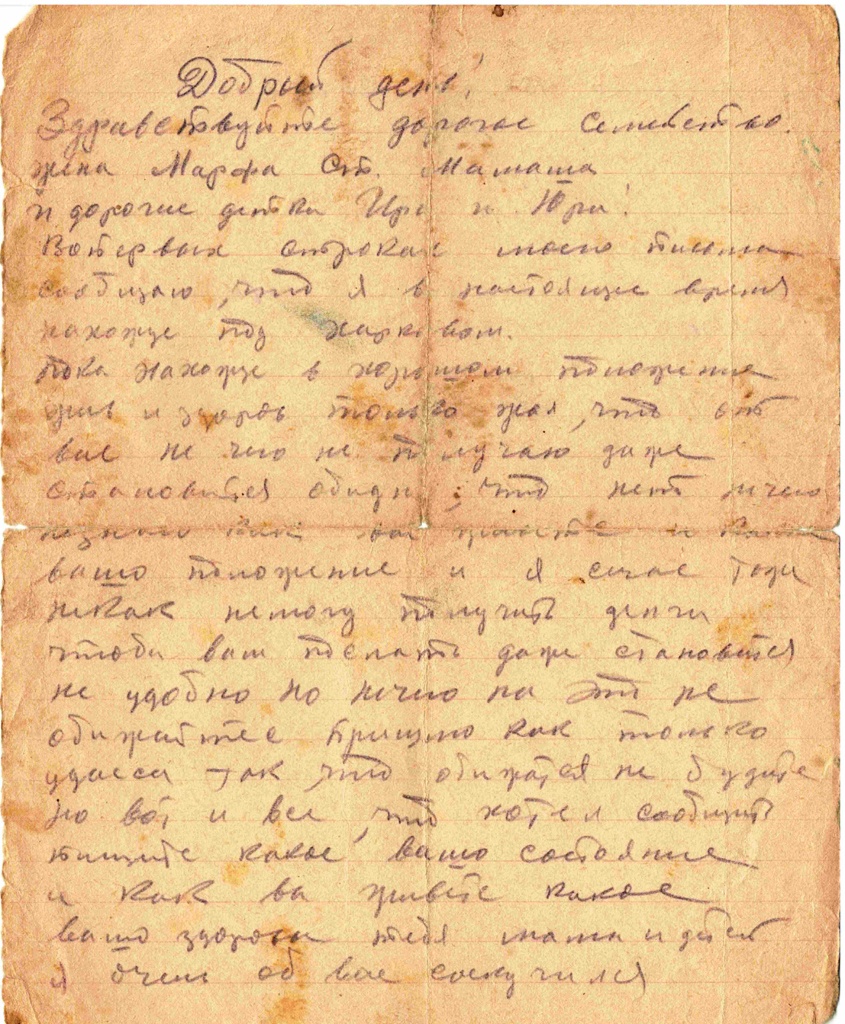 Добрый день!
Здравствуйте дорогое семейство.
жена Марфа Ст. Мамаша
и дорогие детки Ира и Юра!
Вопервых строках моего письма
сообщаю, что я в настоящее время
нахожус под харковом.
пока нахожус в хорошом положение
жив и здоров только жал, что от
вас не чего не получаю даже
становится обидно, что нет ничего
незнаю как вы живете и како
вашо положение и я сичас тоже
некак немогу получить денги
чтоби вам послать даже становится
не удобно но ничего на это не
обижайтес пришлю как только
удасса так, что обижатся не будите
но вот и все, что хотел сообщить
пишите какое вашо состояние
и как вы живете какое
вашо здоровья тебя мама и детей
я очень об вас соскучился